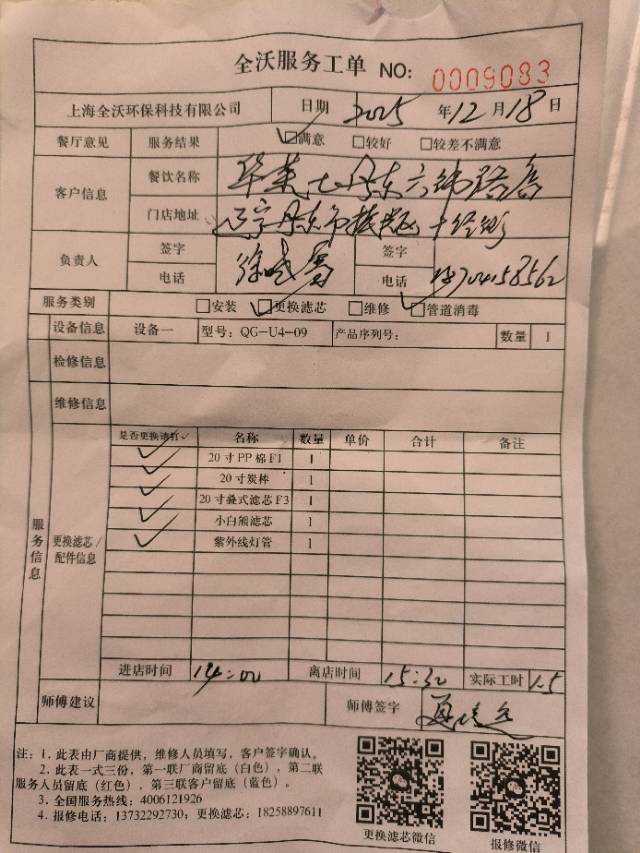 全沃服务工单 NO: 0009083
上海全沃环保科技有限公司 日期 2025 年 12 月 18 日
餐厅意见 服务结果 ☑满意 □较好 □较差不满意
客户信息 餐饮名称 华莱士丹东六纬路店
门店地址 辽宁丹东市振兴区十经街
负责人 签字 签字
电话 电话
服务类别 □安装 ☑更换滤芯 □维修 ☑管道消毒
设备信息 设备一 型号: QG-U4-09 产品序列号: 数量 1
检修信息
维修信息
服务信息 更换滤芯/配件信息
是否更换请打✓ 名称 数量 单价 合计 备注
✓ 20寸PP棉F1 1
✓ 20寸炭棒 1
✓ 20寸叠式滤芯F3 1
✓ 小白熊滤芯 1
✓ 紫外线灯管 1
进店时间 14:00 离店时间 15:30 实际工时 1.5
师傅建议 师傅签字
注: 1. 此表由厂商提供, 维修人员填写, 客户签字确认。
2. 此表一式三份, 第一联厂商留底 (白色), 第二联
服务人员留底 (红色), 第三联客户留底 (蓝色)。
3. 全国服务热线: 4006121926
4. 报修电话: 13732292730; 更换滤芯: 18258897611
更换滤芯微信 报修微信